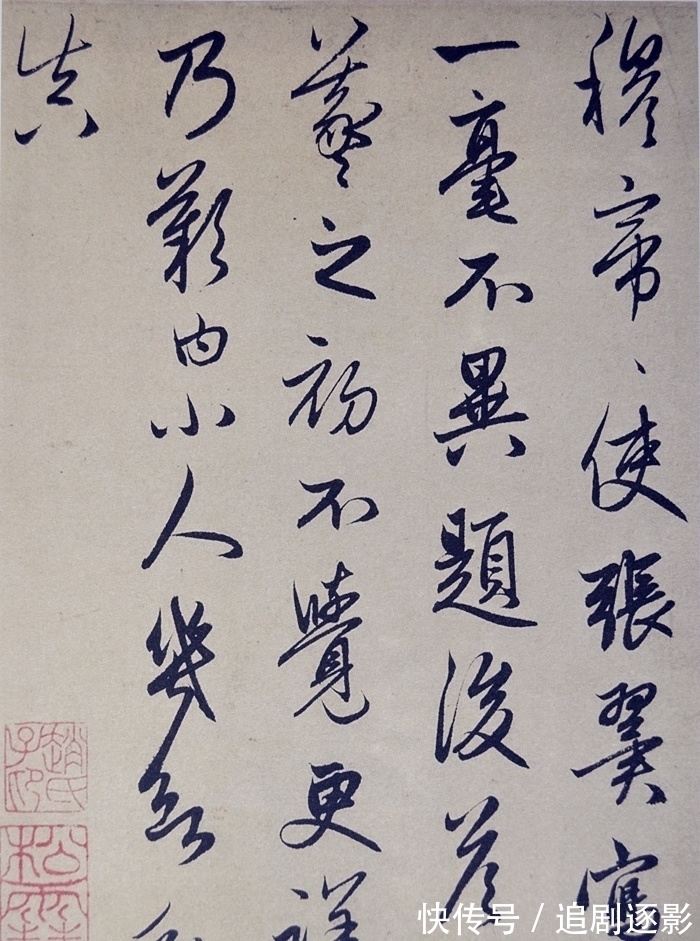 穆帝、使張翼寫
一毫不異題後答
羲之初不覺更詳
乃歎曰小人幾欲
真
趙氏
松雪
快传号 / 追剧逐影